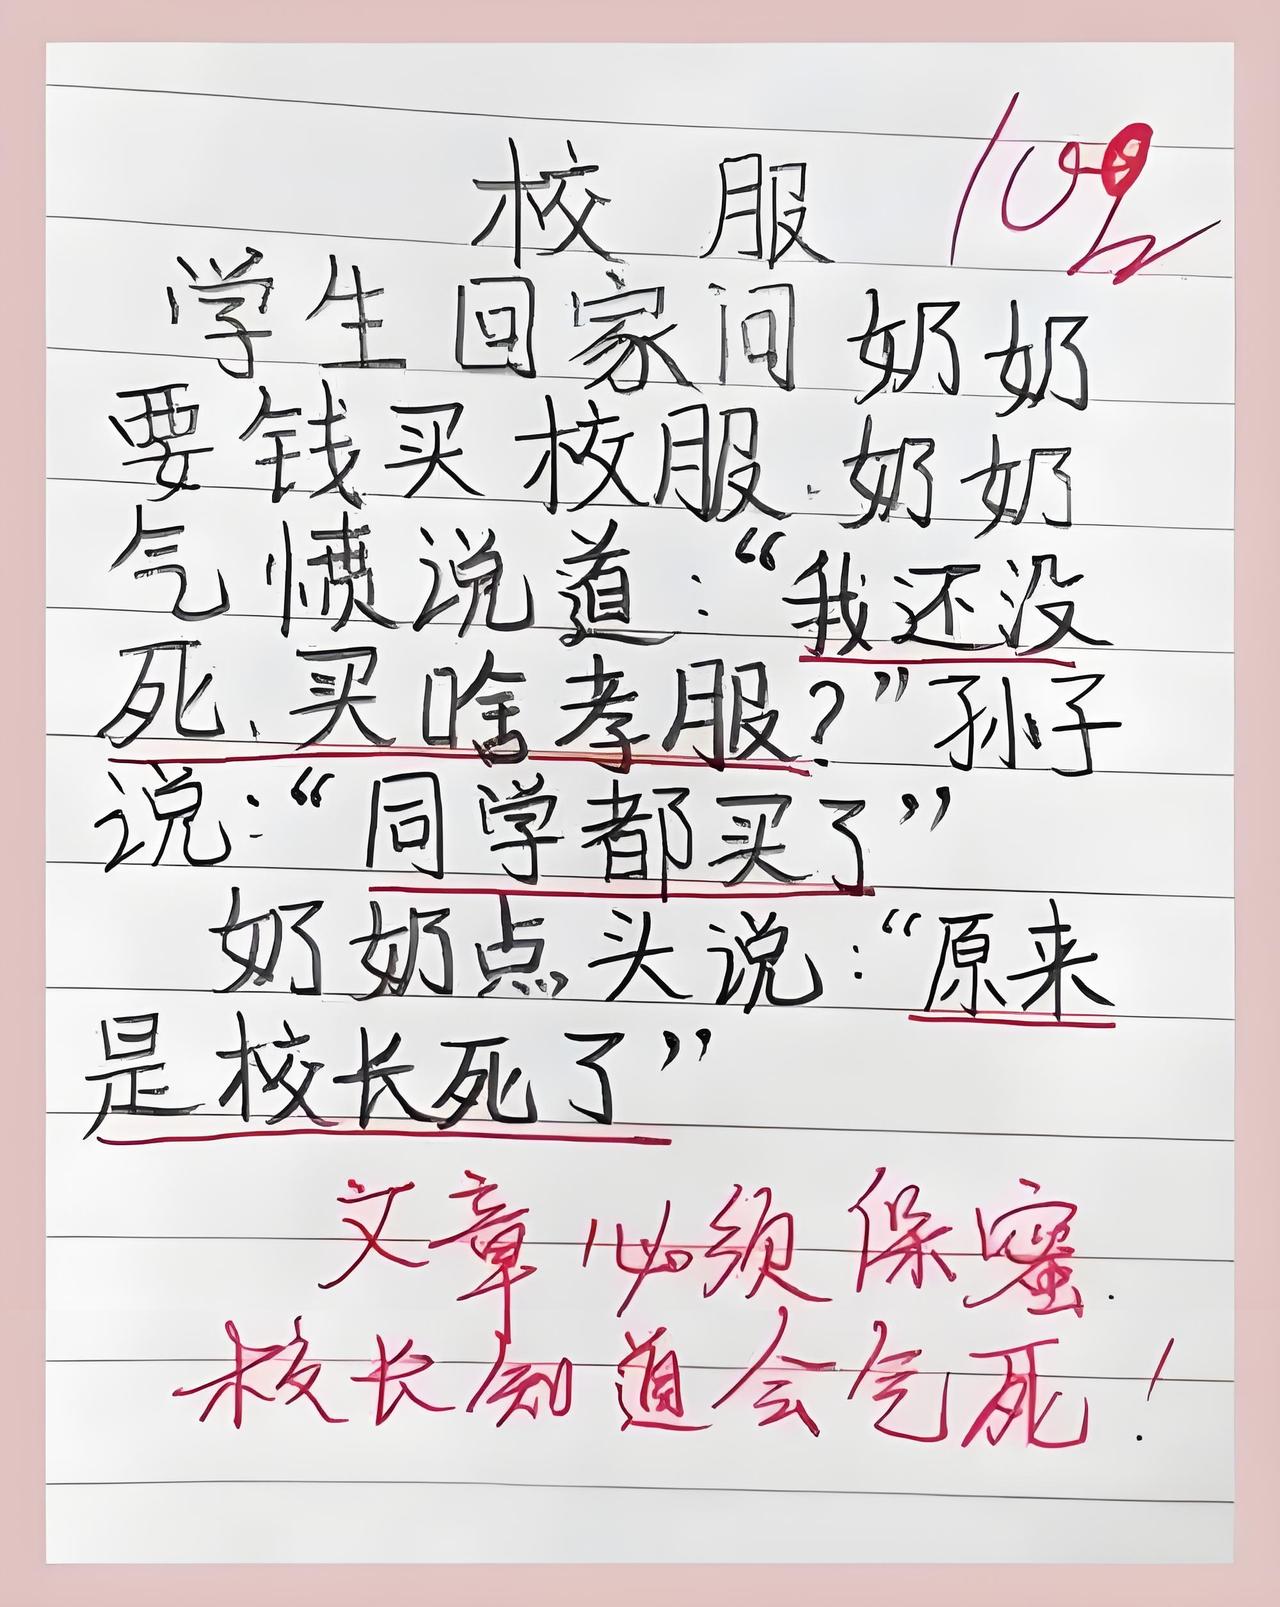 校服
学生回家问奶奶
要钱买校服.奶奶
气愤说道:“我还没
死、买啥孝服?”孙子
说:“同学都买了”
奶奶点头说:“原来
是校长死了”
文章必须保密.
校长知道会气死!